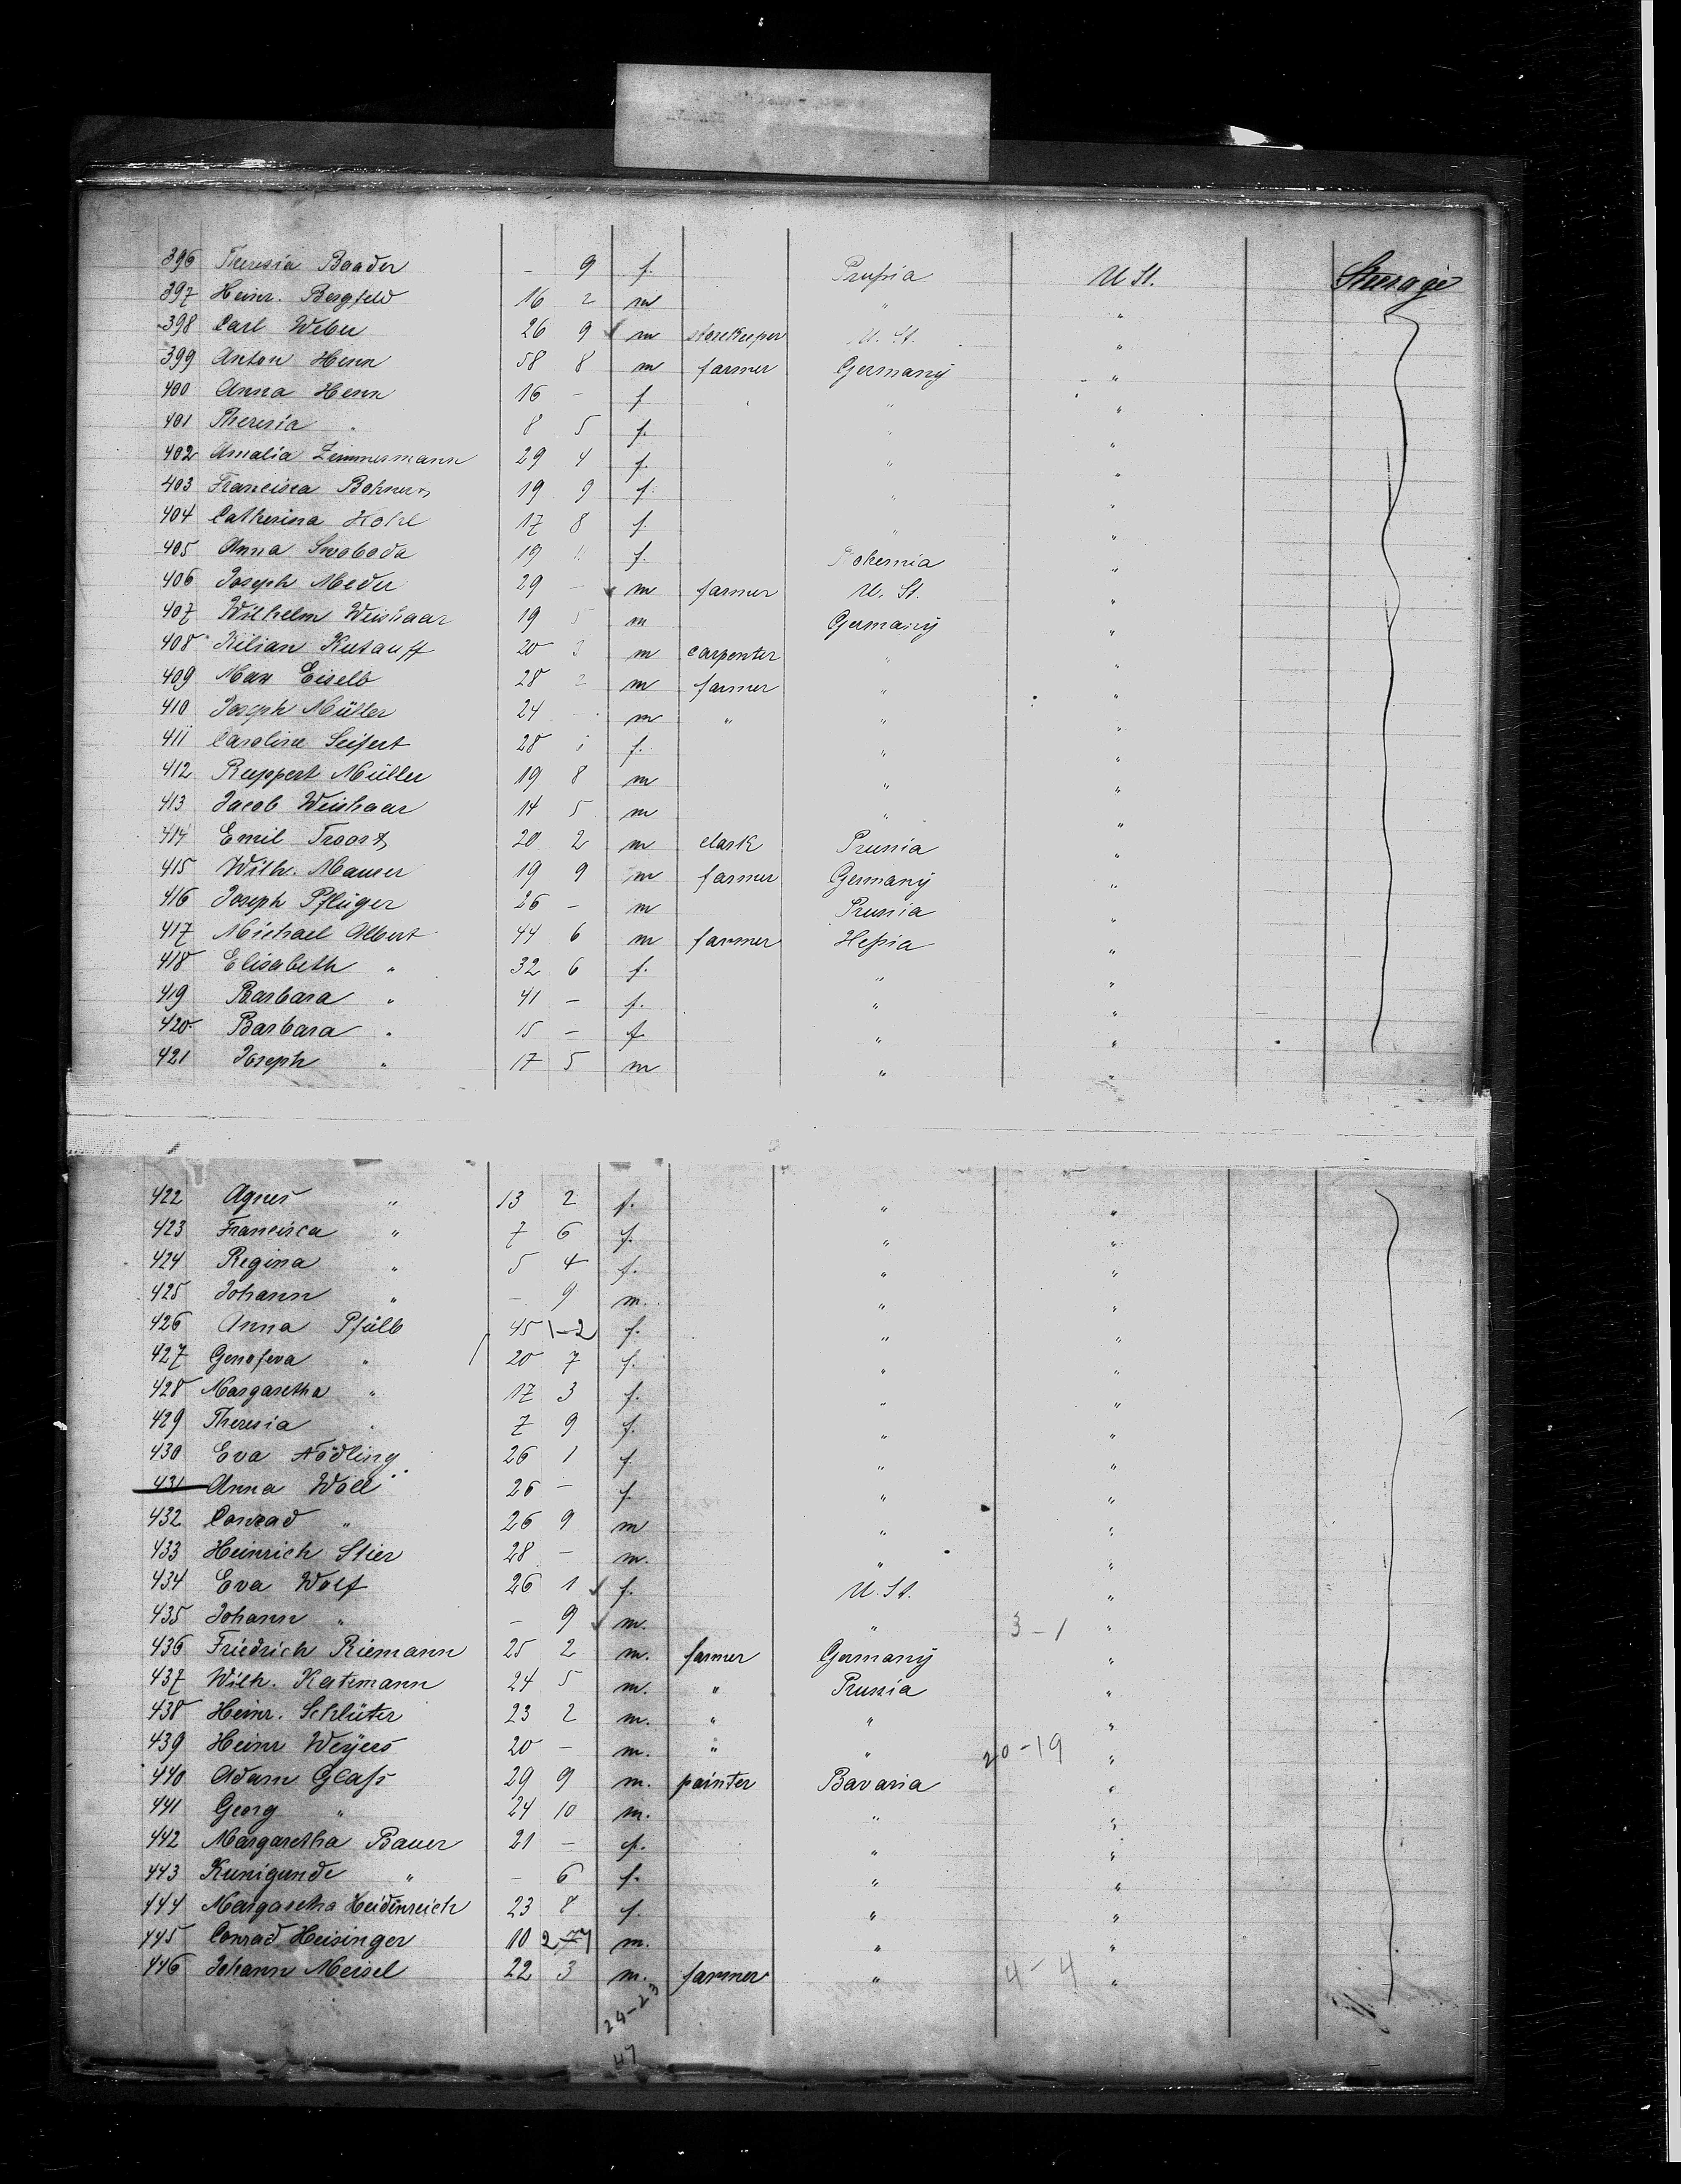 396 Theresia Baader - 9 f. Prussia U St. Steerage
397 Heinr. Bergfeld 16 2 m " "
398 Carl Weber 26 9 m storekeeper U. St. "
399 Anton Henn 58 8 m farmer Germany "
400 Anna Henn 16 - f " "
401 Theresia " 8 5 f. " "
402 Amalia Zimmermann 29 4 f. " "
403 Francisca 19 9 f. " "
404 Catherina Hohl 17 8 f. " "
405 Anna Swoboda 19 f. Bohemia "
406 Joseph Meder 29 - m farmer U. St. "
407 Wilhelm Weishaar 19 5 m Germany "
408 Kilian 20 3 m carpenter " "
409 Max Eiselb 28 2 m farmer " "
410 Joseph Müller 24 - m " " "
411 Caroline Seifert 28 f. " "
412 Ruppert Müller 19 8 m " "
413 Jacob Weishaar 14 5 m " "
414 Emil Troost 20 2 m clark Prussia "
415 Wilh. Mauser 19 9 m farmer Germany "
416 Joseph Pflüger 26 - m Prussia "
417 Michael Albert 44 6 m farmer Hessia "
418 Elisabeth " 32 6 f. " "
419 Barbara " 41 - f. " "
420 Barbara " 15 - f " "
421 Joseph " 17 5 m " "
422 Agnes " 13 2 f. " "
423 Francisca " 7 6 f. " "
424 Regina " 5 4 f. " "
425 Johann " - 9 m. " "
426 Anna Pfülb 45 1-2 f. " "
427 Genofeva " 20 7 f. " "
428 Margaretha " 17 3 f. " "
429 Theresia " 7 9 f. " "
430 Eva Nödling 26 1 f. " "
431 Anna Woll 26 - f. " "
432 Conrad " 26 9 m " "
433 Heinrich Stier 28 - m. " "
434 Eva Wolf 26 1 f. U. St. "
435 Johann " - 9 m. " 3-1 "
436 Friedrich Riemann 25 2 m. farmer Germany "
437 Wilh. Katzmann 24 5 m. " Prussia "
438 Heinr. Schlüter 23 2 m. " " "
439 Heinr Weyers 20 - m. " " 20-19 "
440 Adam Glass 29 9 m. painter Bavaria "
441 Georg " 24 10 m. " "
442 Margaretha Bauer 21 - f. " "
443 Kunigunde " - 6 f. " "
444 Margaretha Heidenreich 23 8 f. " "
445 Conrad Heisinger 10 m. " "
446 Johann Meisel 22 3 m. farmer " 4-4 "
24-23
47